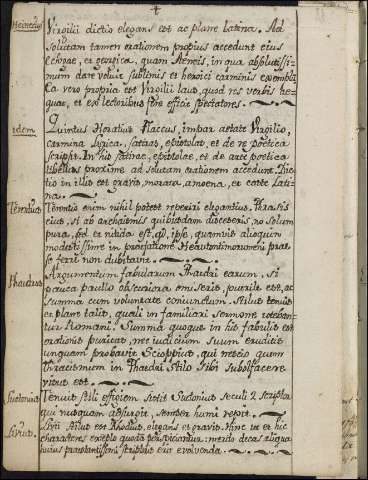 Heinecius
Virgilii dictio elegans est ac plane Latina. Ad
solutam tamen orationem propius accedunt ejus
Eclogae, et georgica, quam Aeneis, in qua absolutissi-
mum dare voluit sublimis et heroici carminis exemplar.
Ea vero propria est Virgilii laus, quod res verbis
quae, et ex lectoribus fere efficit spectatores.
idem
Quintus Horatius Flaccus, impar aetate Virgilio,
carmina lyrica, satiras, epistolas, et de re poëtica
scripsit. In his satirae, epistolae, et de arte poëtica
libellus proxime ad solutam orationem accedunt. Dic-
tio in illis est gravis, morata, amoena, et caste Lati-
na.
Terentius.
Terentio enim nihil potest reperiri elegantius. Phrasis
ejus, si ab archaismis quibusdam discesseris, no solum
pura, sed et nitida est, qd ipse, quamvis alioquin
modestissime in praefatione Heautontimorumeni prae
se ferre non dubitavit.
Phaedrus
Argumentum fabularum Phaedri earum, si
pauca paullo obscoeniora omiseris, puerile est, ac
summa cum voluntate conjunctum. Stilus tenuis
et plane talis, quali in familiari sermone uteban-
tur Romani. Summa quoque in his fabulis est
orationis puritas, nec judicium suum eruditis
unquam probavit Scioppius, qui nescio quem
Thracismum in Phaedri stilo sibi subolfacere
visus est.
Suetonius
Tenuis stili effigiem sistit Suetonius seculi 2 scriptor
qui nusquam adsurgit, semper humi repit.
Livius.
Livii stilus est Rhodius, elegans et gravis. Hinc ut et hic
character exemplo quodā perspiciantur: merito decas aliqua
hujus praestantissimi scriptoris erit evolvenda.